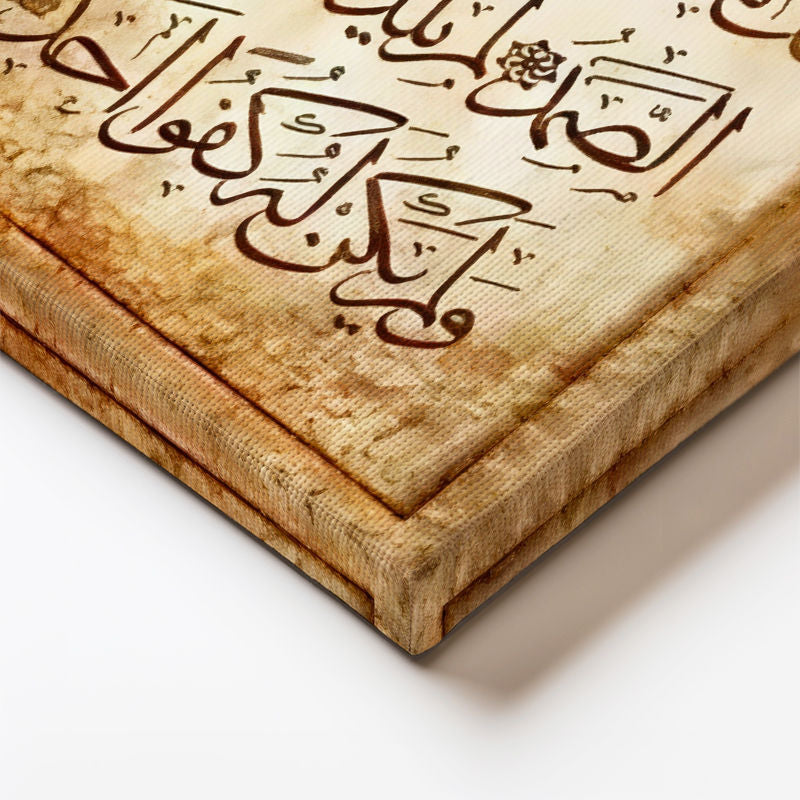 الصَّمَدُ لَمْ يَلِدْ
وَلَمْ يَكُنْ لَهُ كُفُوًا أَحَدٌ